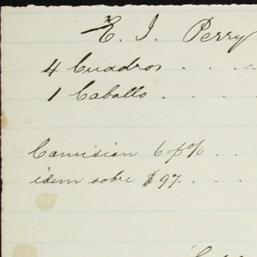 E. J. Perry
4 Cuadros . . . .
1 Caballo . . . .
Comision 6 p% . . .
idem sobre $97. . . .